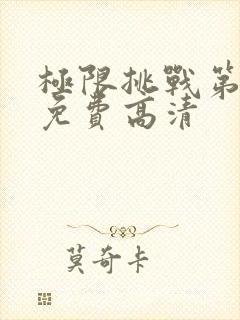 極限挑戰第
免費高清
莫奇卡